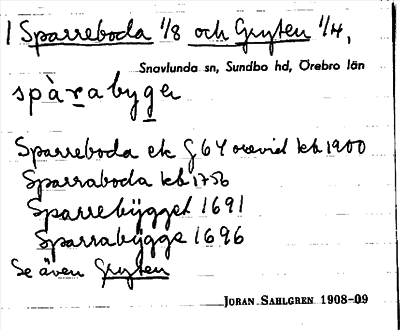 1 Sparreboda 1/8 och Gryten 1/4,
Snavlunda sn, Sundbo hd, Örebro län
spàrabygen
Sparreboda ek G 64 kb 1900
Sparraboda kb 1756
Sparrebÿgget 1691
Sparrabÿgge 1696
Se även Gryten
JORAN SAHLGREN 1908-09